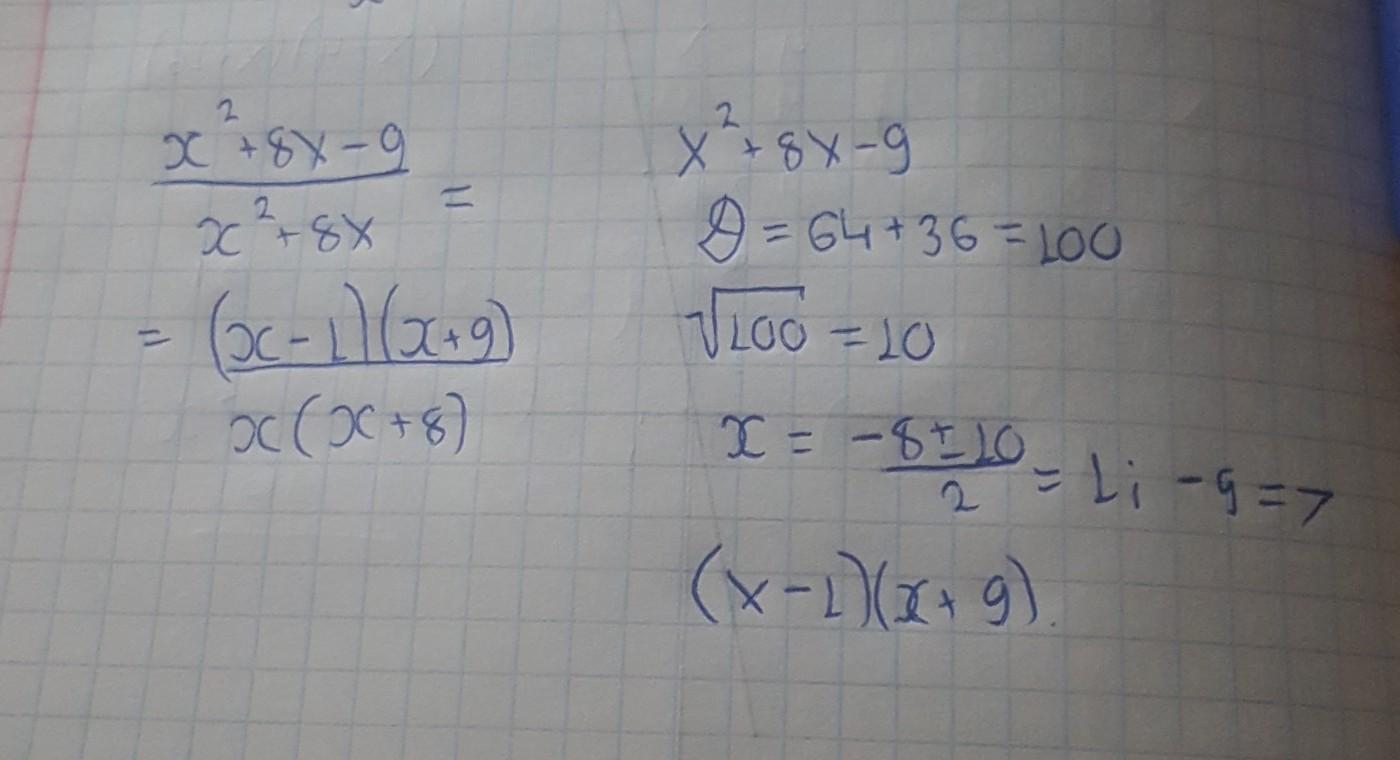 x²+8x-9
x²+8x
=
= (x-1)(x+9)
x(x+8)
x²+8x-9
D=64+36=100
√100=10
x = -8±10
2
= 1; -9=>
(x-1)(x+9).